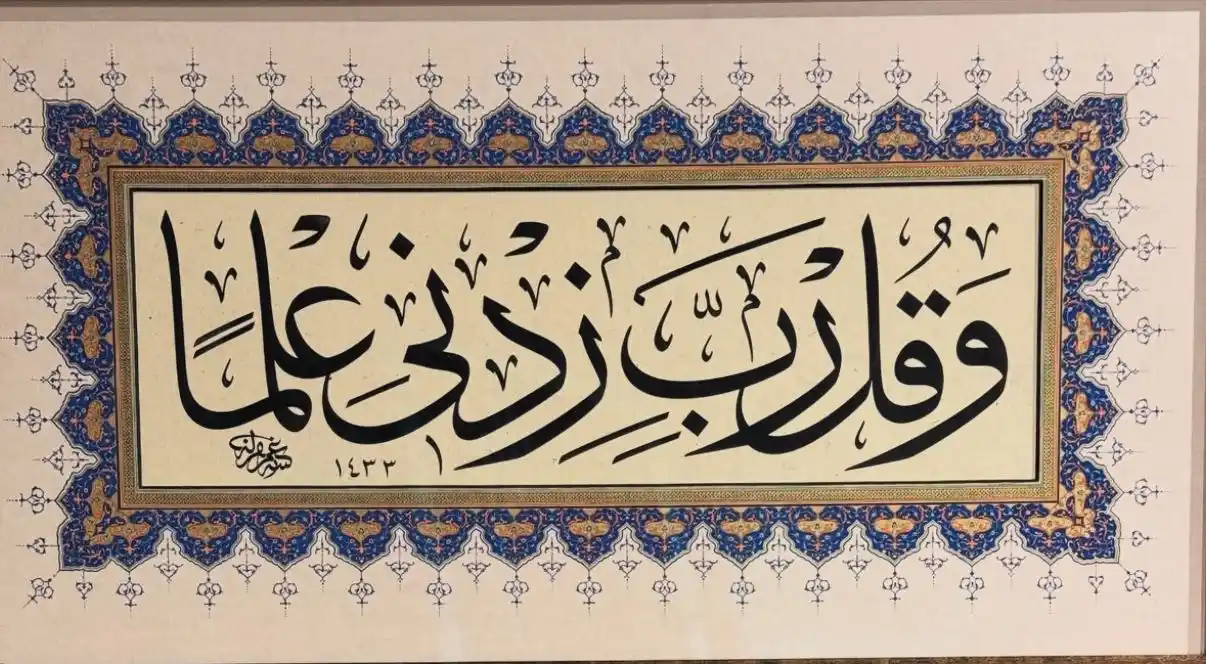 وَقُل رَبِّ زِدْنِي عِلْمًا
١٤٣٣